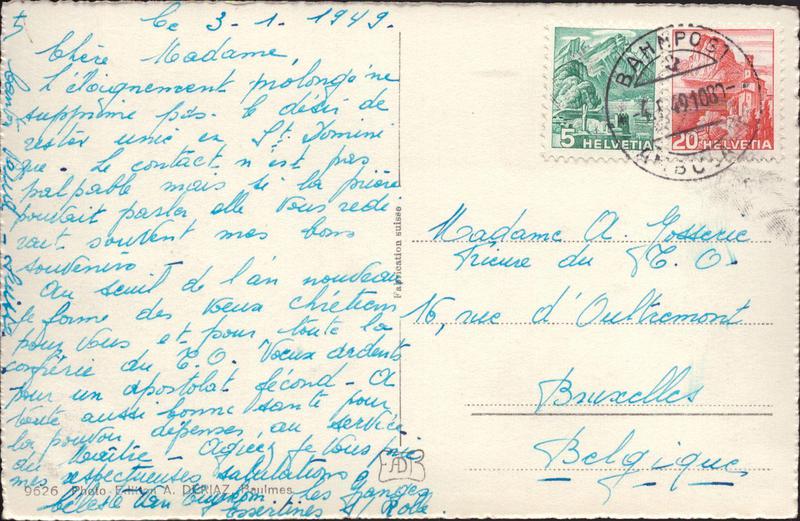 Le 3-1.1949.
Chère Madame,
L'éloignement prolongé ne
supprime pas le désir de
rester unie en St. Domini
que. Le contact n'est pas
palpable mais si la prière
pouvait parler elle vous rede
rait souvent mes bons
souvenirs
Au seuil de l'an nouveau
je forme des vœux chrétiens
pour vous et pour toute la
confrérie du T.O. Vœux ardents
pour un apostolat fécond - A
toute aussi bonne santé pour
la pouvoir dépenser au service
du Maître - Agréez je vous prie
mes respectueuses salutations
Céleste Van les Granges
Essertines s/ Rolle
9626 Photo Edition A. DERIAZ, Baulmes
Fabrication suisse
EAD B
5 HELVETIA
20 HELVETIA
BAHNPOST
Madame A. Josserie
Prieure du T.O.
16, rue d'Oultremont
Bruxelles
Belgique